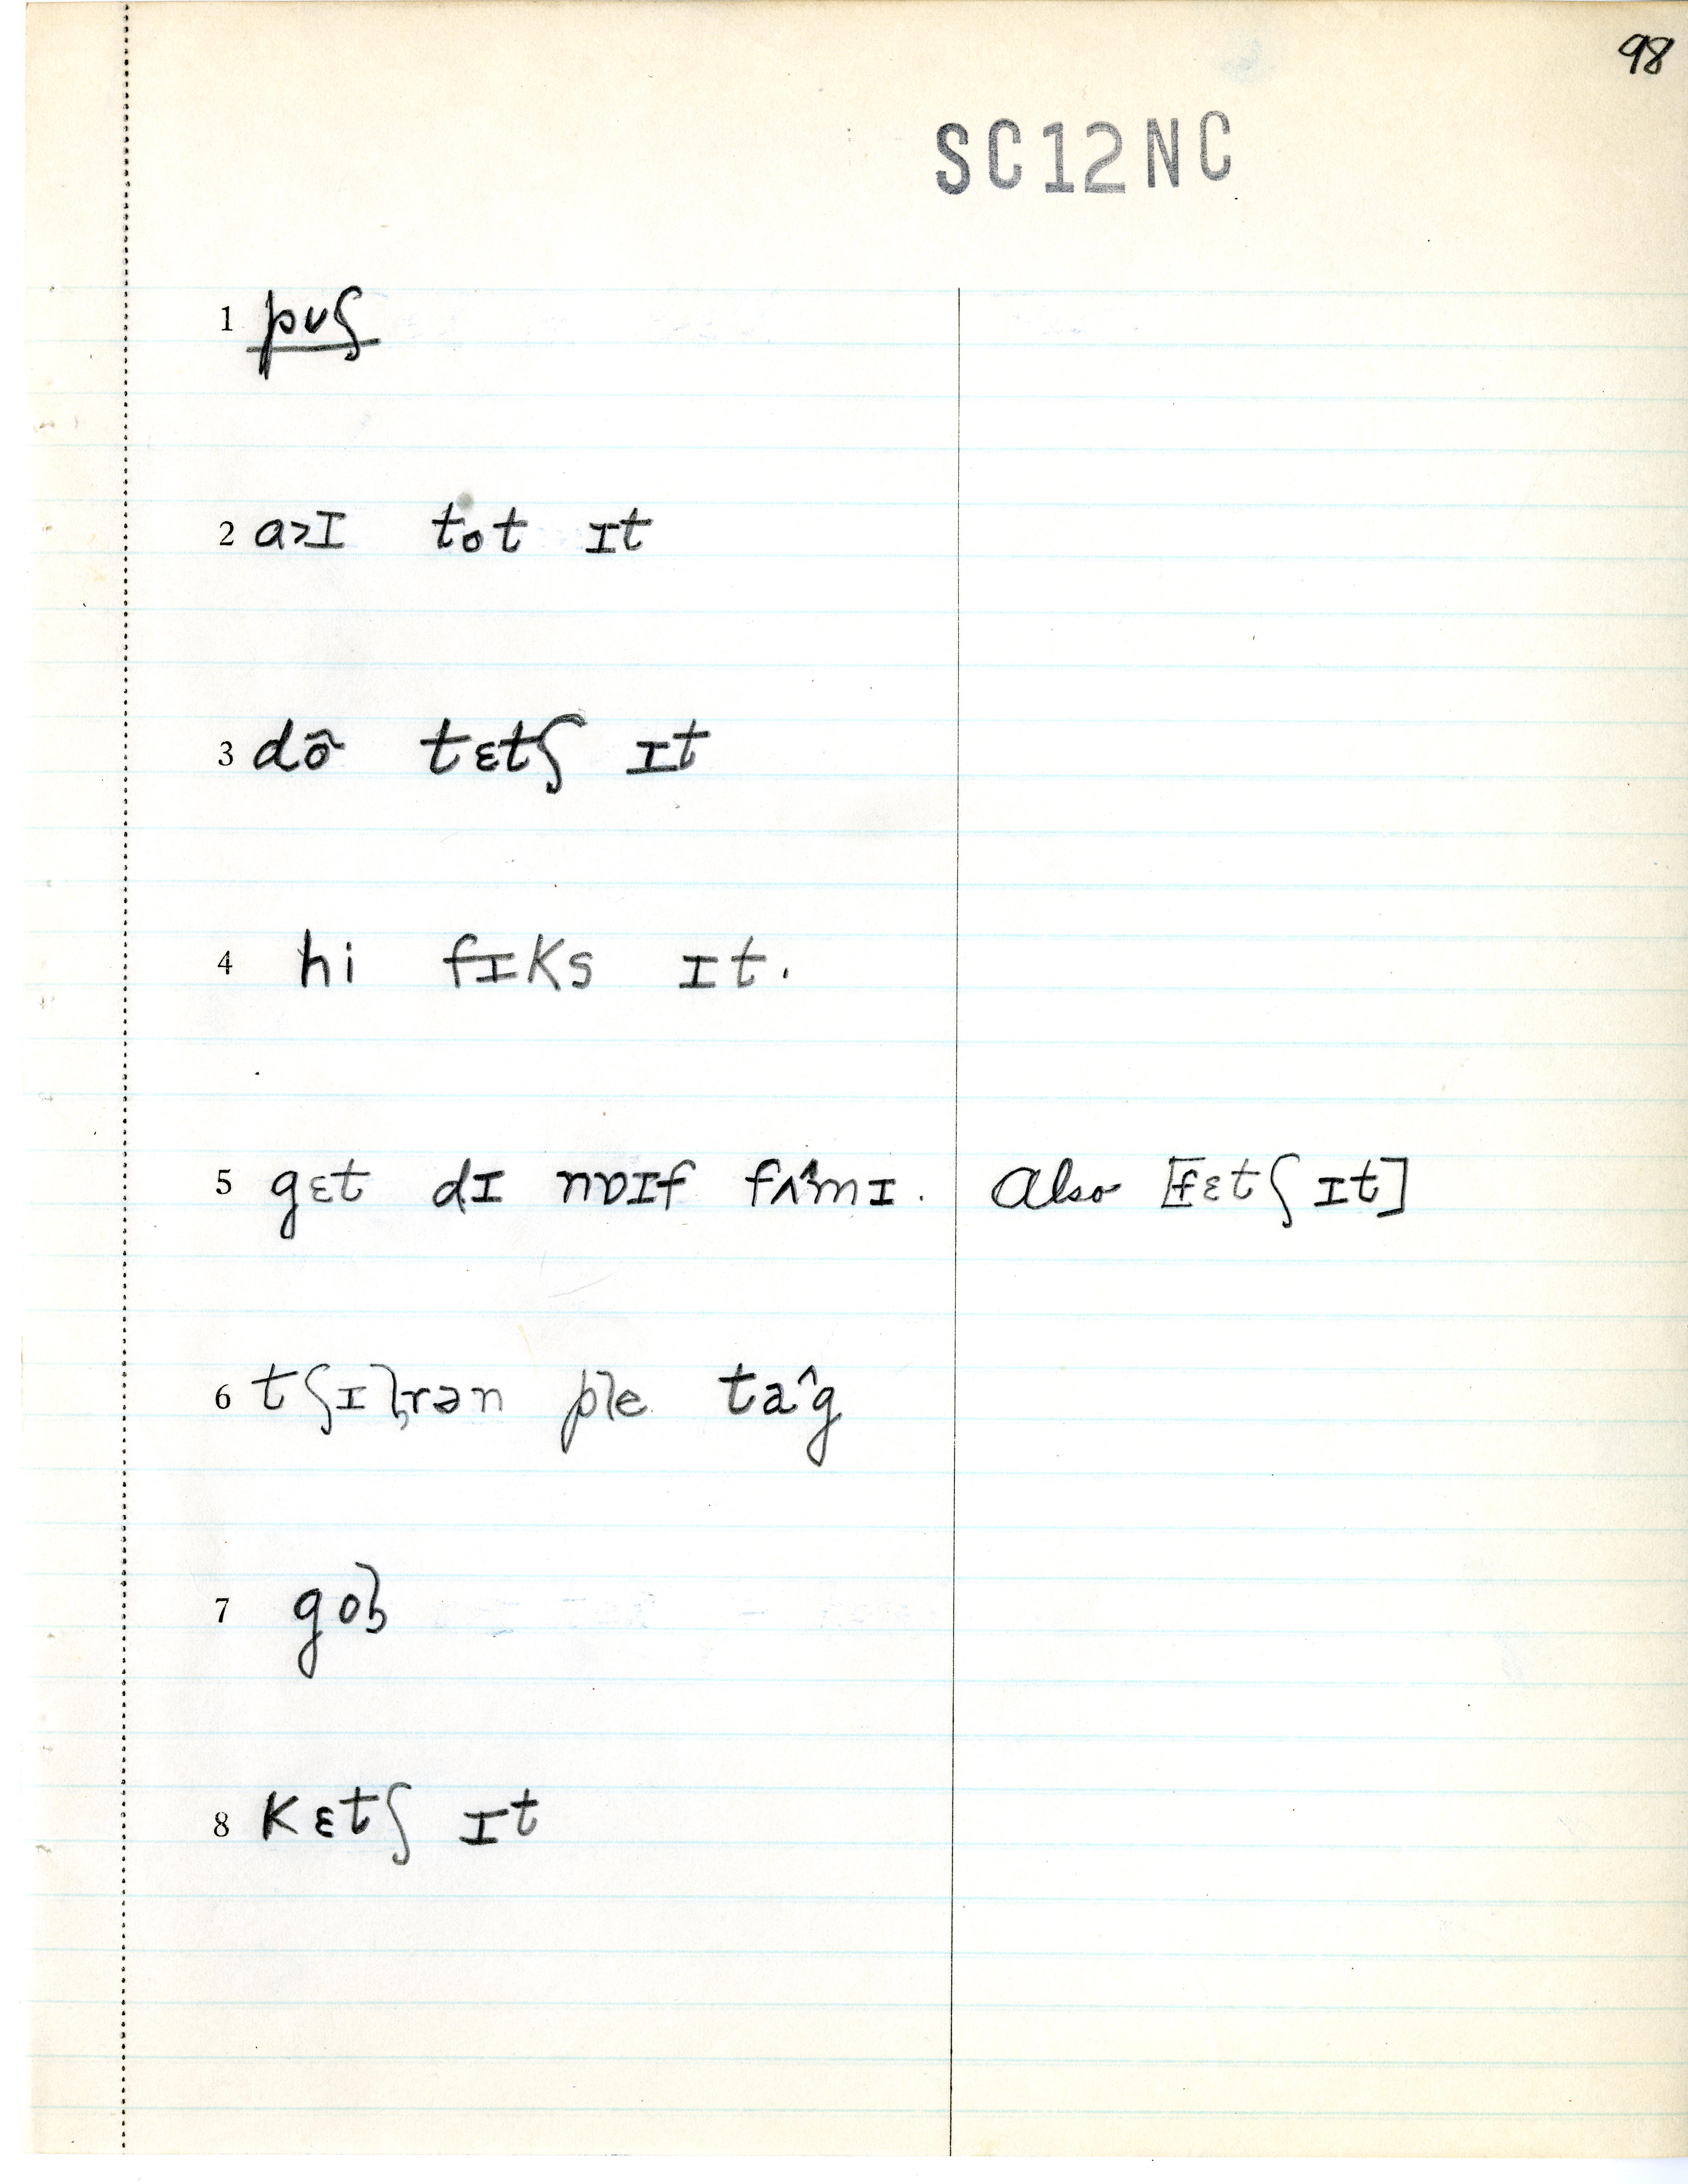 98
SC12NC
1 pʊʃ
2 a>ɪ tot ɪt
3 dõ tɛtʃ ɪt
4 hi fɪks ɪt.
5 gɛt dɪ nɒɪf fʌ^mɪ. Also [fɛtʃ ɪt]
6 tʃɪlrən ple ta^g
7 
8 kɛtʃ ɪt